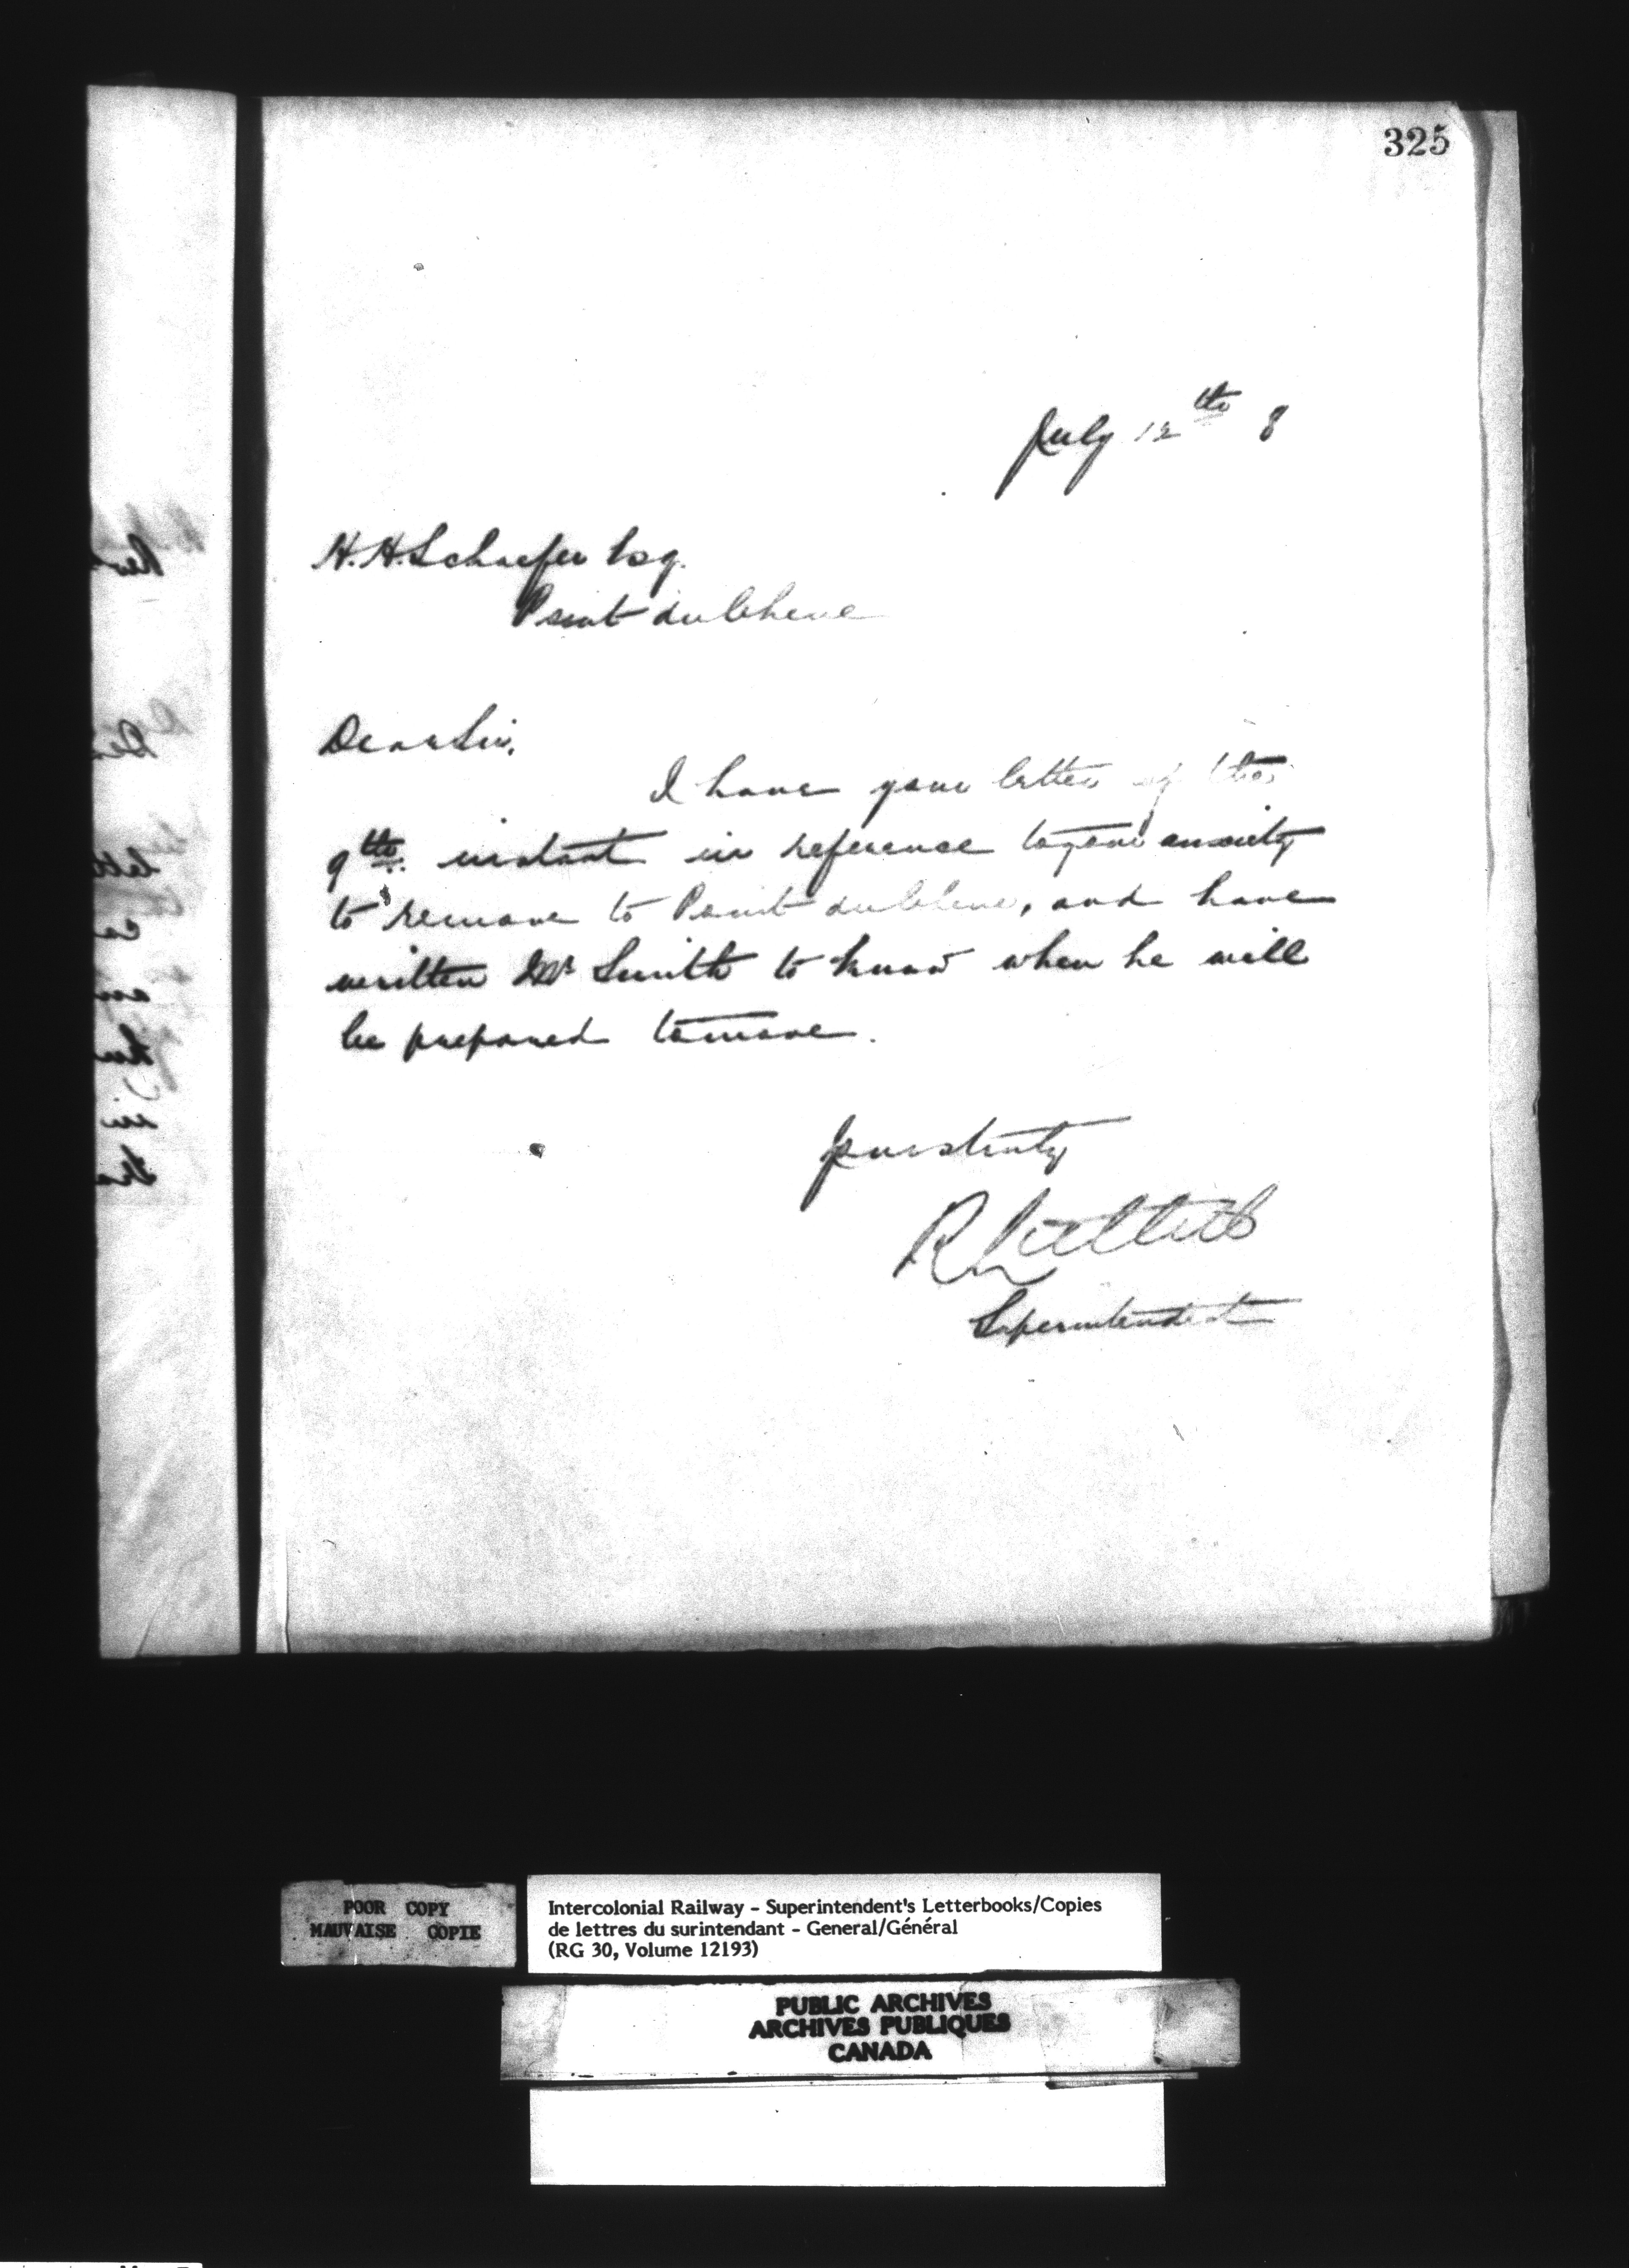 325
July 12th 8
H. H. Schaefer Esq.
Point du Chene
Dear Sir,
I have your letter of the
9th instant in reference to your anxiety
to remove to Point du Chene, and have
written Mr Smith to know when he will
be prepared to move.
Yours truly
R Luttrell
Superintendent
POOR COPY
MAUVAISE COPIE
Intercolonial Railway - Superintendent's Letterbooks/Copies
de lettres du surintendant - General/Général
(RG 30, Volume 12193)
PUBLIC ARCHIVES
ARCHIVES PUBLIQUES
CANADA